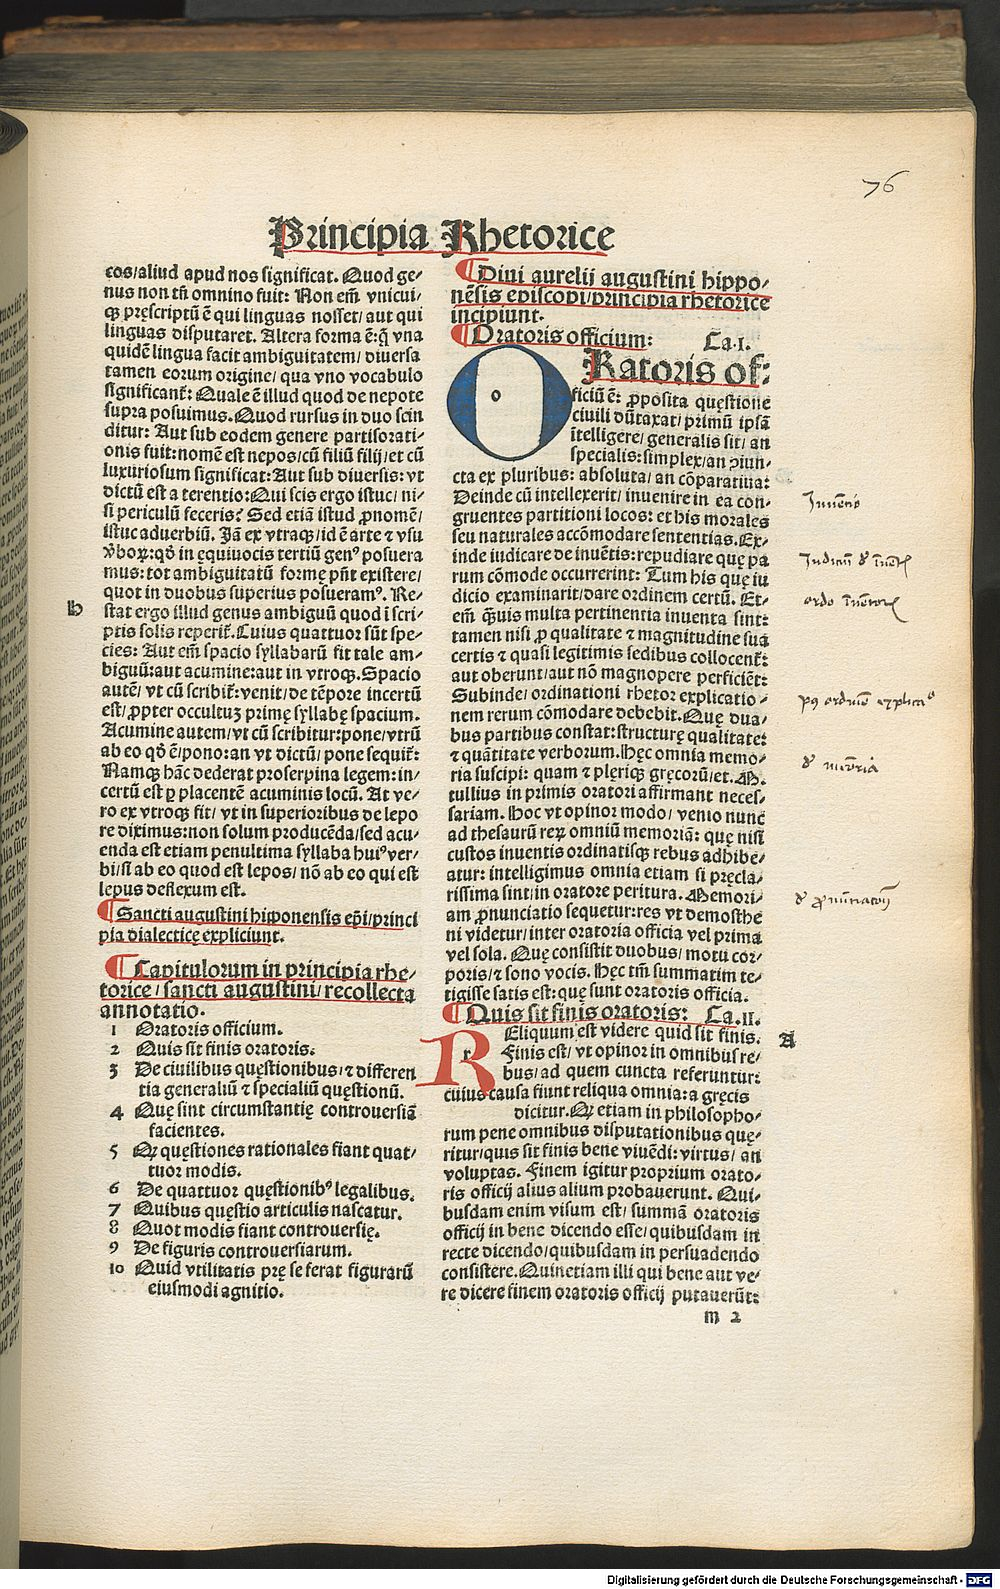 76
Principia Rhetorice
cos/aliud apud nos significat. Quod ge⸗
nus non tñ omnino fuit: Non em̃ vnicui⸗
qꝫ pręscriptũ ẽ qui linguas nosset/aut qui
linguas disputaret. Altera forma ẽ:q̃ vna
quidẽ lingua facit ambiguitatem/diuersa
tamen eorum origine/qua vno vocabulo
significant̃: Quale ẽ illud quod de nepote
supra posuimus. Quod rursus in duo scin
ditur: Aut sub eodem genere partisorati⸗
onis fuit:nomẽ est nepos/cũ filiũ filij/et cũ
luxuriosum significat:Aut sub diuersis: vt
dictũ est a terentio:Qui scis ergo istuc/ni⸗
si periculũ feceris? Sed etiã istud ꝓnomẽ/
istuc aduerbiũ. Jã ex vtraqꝫ/id ẽ arte ⁊ vsu
v̾boꝝ:qđ in ęquiuocis tertiũ genꝰ posuera
mus:tot ambiguitatũ formę pñt existere/
quot in duobus superius posueramꝰ. Re⸗
b
stat ergo illud genus ambiguũ quod ĩ scri⸗
ptis solis reperit̃. Cuius quattuor sũt spe⸗
cies: Aut em̃ spacio syllabarũ fit tale am⸗
biguũ:aut acumine:aut in vtroqꝫ. Spacio
autẽ/vt cũ scribit̃:venit/de tẽpore incertũ
est/ꝓpter occultuꝫ primę syllabę spacium.
Acumine autem/vt cũ scribitur:pone/vtrũ
ab eo qđ ẽ/pono:an vt dictũ/pone sequit̃:
Namqꝫ hãc dederat proserpina legem:in⸗
certũ est ꝑ placentẽ acuminis locũ. At ve⸗
ro ex vtroqꝫ fit/vt in superioribus de lepo
re diximus:non solum producẽda/sed acu⸗
enda est etiam penultima syllaba huiꝰ ver⸗
bi/si ab eo quod est lepos/nõ ab eo qui est
lepus deflexum est.
¶ Sancti augustini hipponensis ep̃i/princi
pia dialecticę expliciunt.
¶ Capitulorum in principia rhe⸗
torice/sancti augustini/recollecta
annotatio.
1 Oratoris officium.
2 Quis sit finis oratoris.
3 De ciuilibus quęstionibus/⁊ differen
tia generaliũ ⁊ specialiũ quęstionũ.
4 Quę sint circumstantię controuersiã
facientes.
5 Qꝙ quęstiones rationales fiant quat⸗
tuor modis.
6 De quattuor quęstionibꝰ legalibus.
7 Quibus quęstio articulis nascatur.
8 Quot modis fiant controuersię.
9 De figuris controuersiarum.
10 Quid vtilitatis prę se ferat figurarũ
eiusmodi agnitio.
¶ Diui aurelij augustini hippo⸗
nẽsis episcopi/principia rhetorice
incipiunt.
¶ Oratoris officium: Ca.I.
o
Ratoris of⸗
ficiũ ẽ: ꝓposita quęstione
ciuili dũtaxat/primũ ipsã
ĩtelligere/generalis sit/an
specialis:simplex/an ꝯiun⸗
cta ex pluribus: absoluta/an cõparatiua:
Deinde cũ intellexerit/inuenire in ea con⸗
gruentes partitioni locos: et his morales
seu naturales accõmodare sententias. Ex⸗
inde iudicare de inuẽtis:repudiare quę pa
rum cõmode occurrerint: Tum his quę iu
dicio examinarit/dare ordinem certũ. Et⸗
em̃ q̃uis multa pertinentia inuenta sint:
tamen nisi ꝓ qualitate ⁊ magnitudine sua
certis ⁊ quasi legitimis sedibus collocent̃:
aut oberunt/aut nõ magnopere perficiẽt:
Subinde/ordinationi rhetor explicatio⸗
nem rerum cõmodare debebit. Quę dua⸗
bus partibus constat:structurę qualitate:
⁊ quãtitate verborum. Hęc omnia memo⸗
ria suscipi: quam ⁊ plęriqꝫ gręcorũ/et. M.
tullius in primis oratori affirmant neces⸗
sariam. Hoc vt opinor modo/venio nunc
ad thesaurũ reꝝ omniũ memoriã: quę nisi
custos inuentis ordinatisqꝫ rebus adhibe⸗
atur: intelligimus omnia etiam si pręcla⸗
rissima sint/in oratore peritura. Memori⸗
am ꝓnunciatio sequetur:res vt demosthe
ni videtur/inter oratoria officia vel prima
vel sola. Quę consistit duobus/motu cor⸗
poris/⁊ sono vocis. Hęc tm̃ summatim te⸗
tigisse satis est: quę sunt oratoris officia.
¶ Quis sit finis oratoris: Ca.II.
r
REliquum est videre quid sit finis. A
Finis est/vt opinor in omnibus re⸗
bus/ad quem cuncta referuntur:
cuius causa fiunt reliqua omnia:a gręcis
dicitur. Qꝙ etiam in philosopho⸗
rum pene omnibus disputationibus quę⸗
ritur/quis sit finis bene viuẽdi: virtus/an
voluptas. Finem igitur proprium orato⸗
ris officij alius alium probauerunt. Qui⸗
busdam enim visum est/summã oratoris
officij in bene dicendo esse/quibusdam in
recte dicendo/quibusdam in persuadendo
consistere. Quinetiam illi qui bene aut ve⸗
re dicere finem oratoris officij putauerũt:
m 2
Digitalisierung gefördert durch die Deutsche Forschungsgemeinschaft - DFG